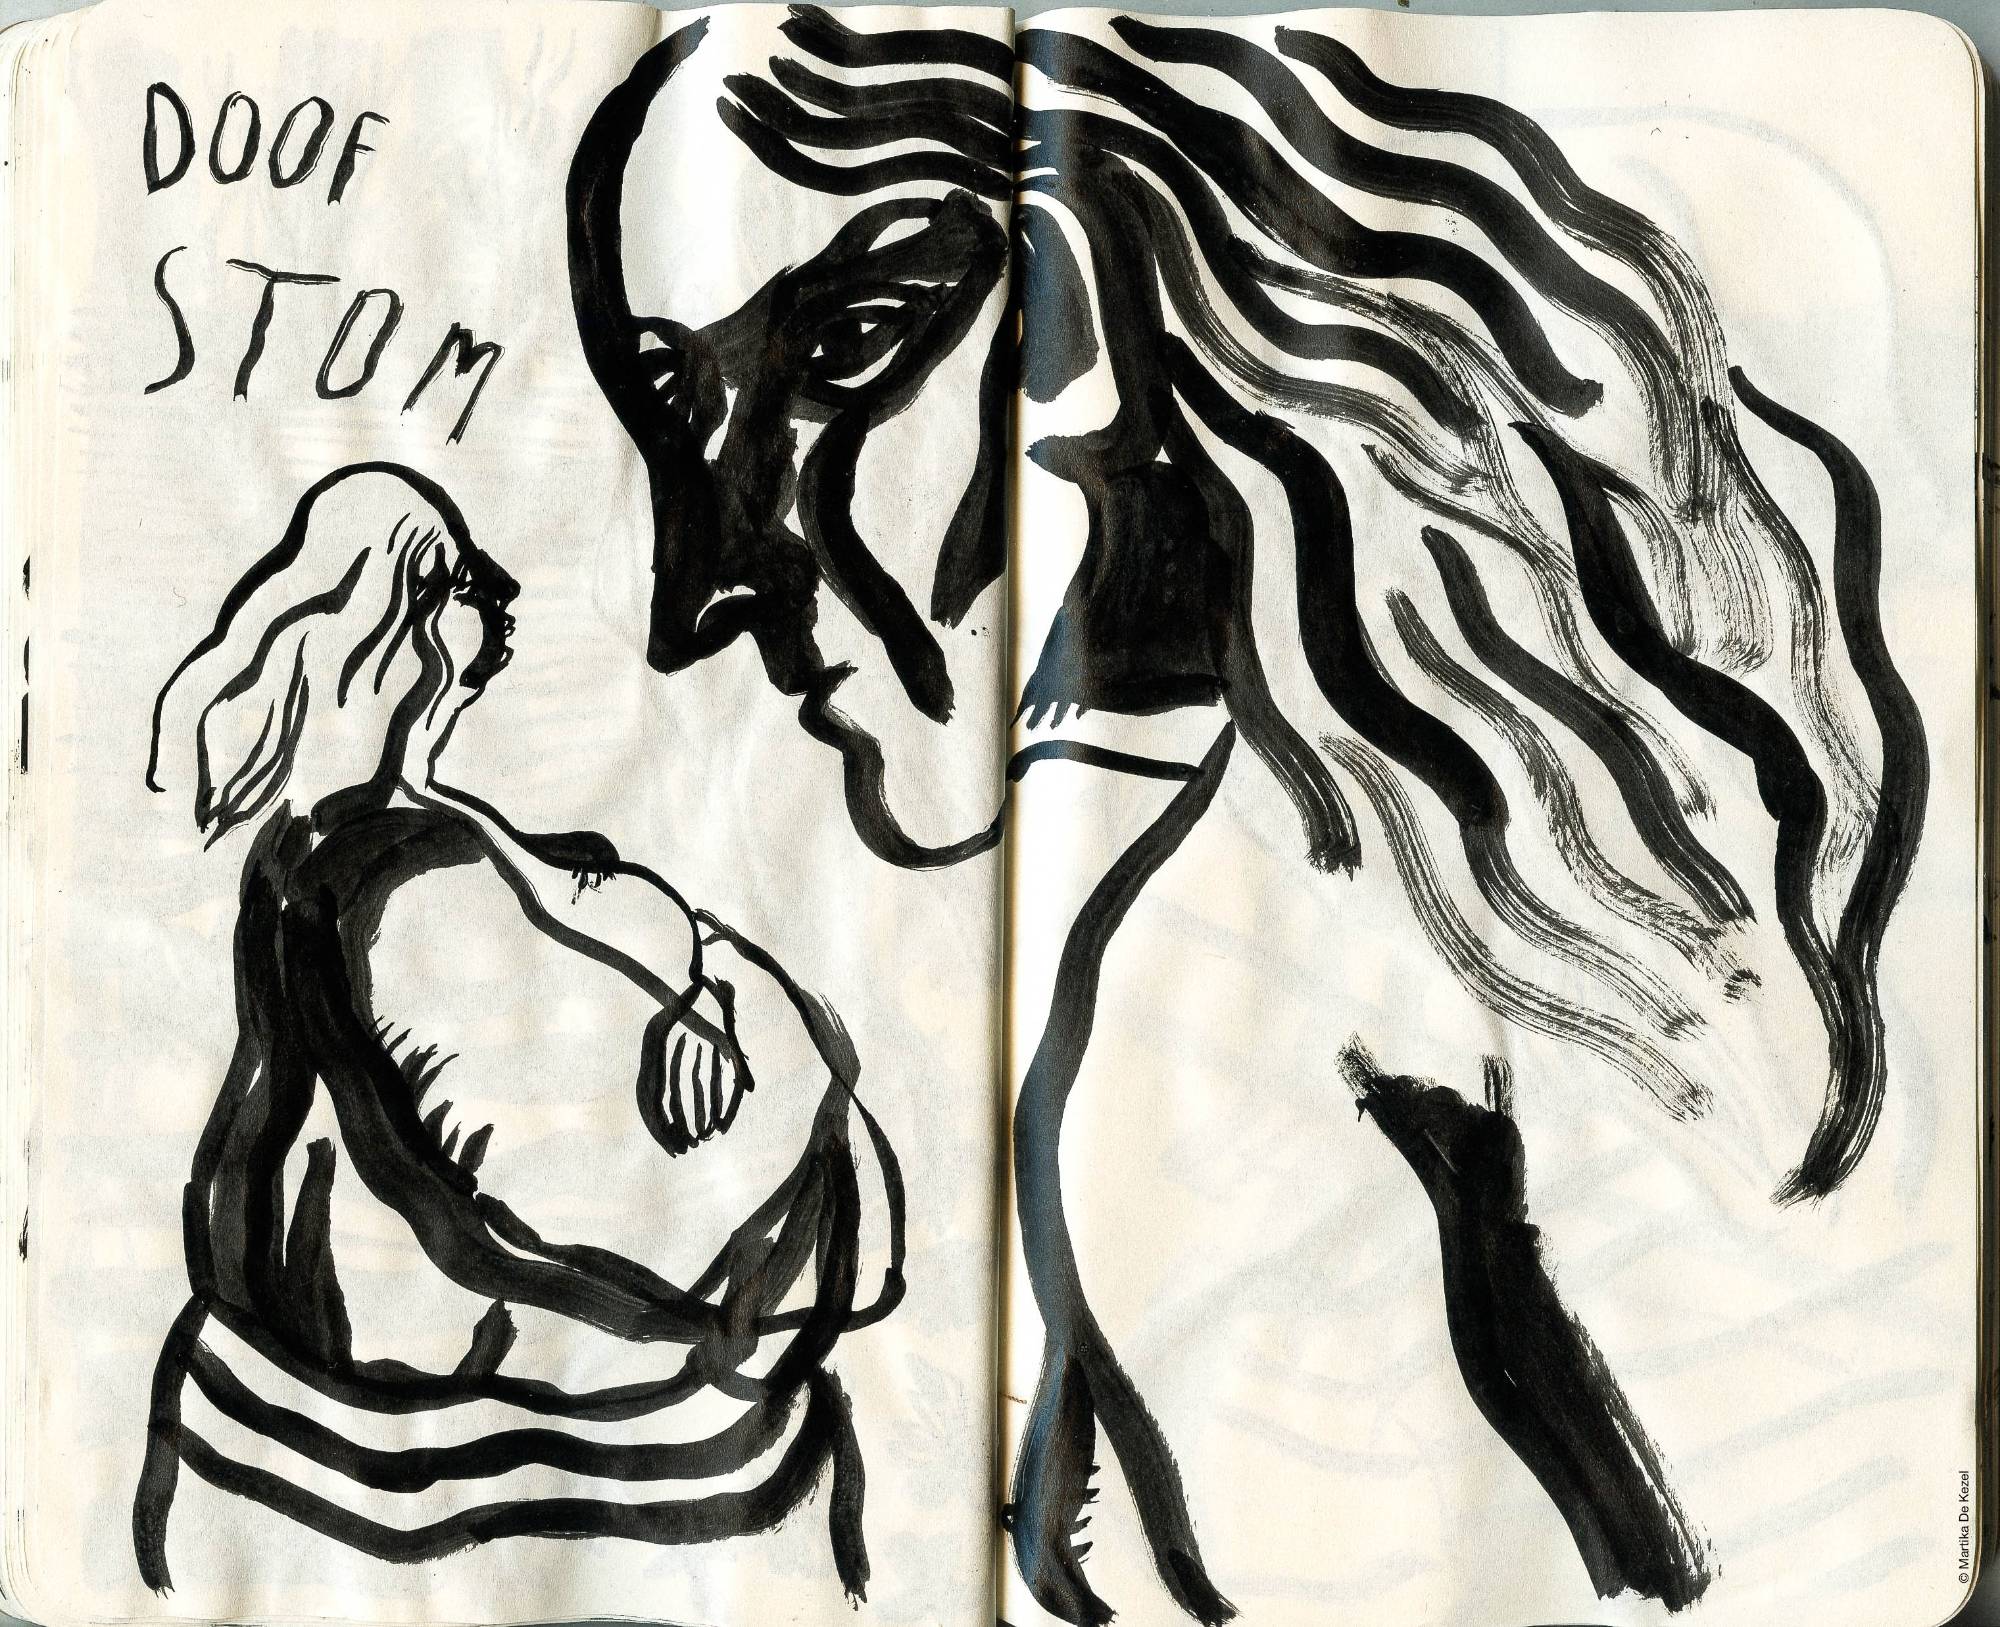 DOOF
STOM
© Martika De Kezel